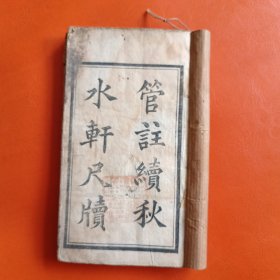 管註續秋
水軒尺牘